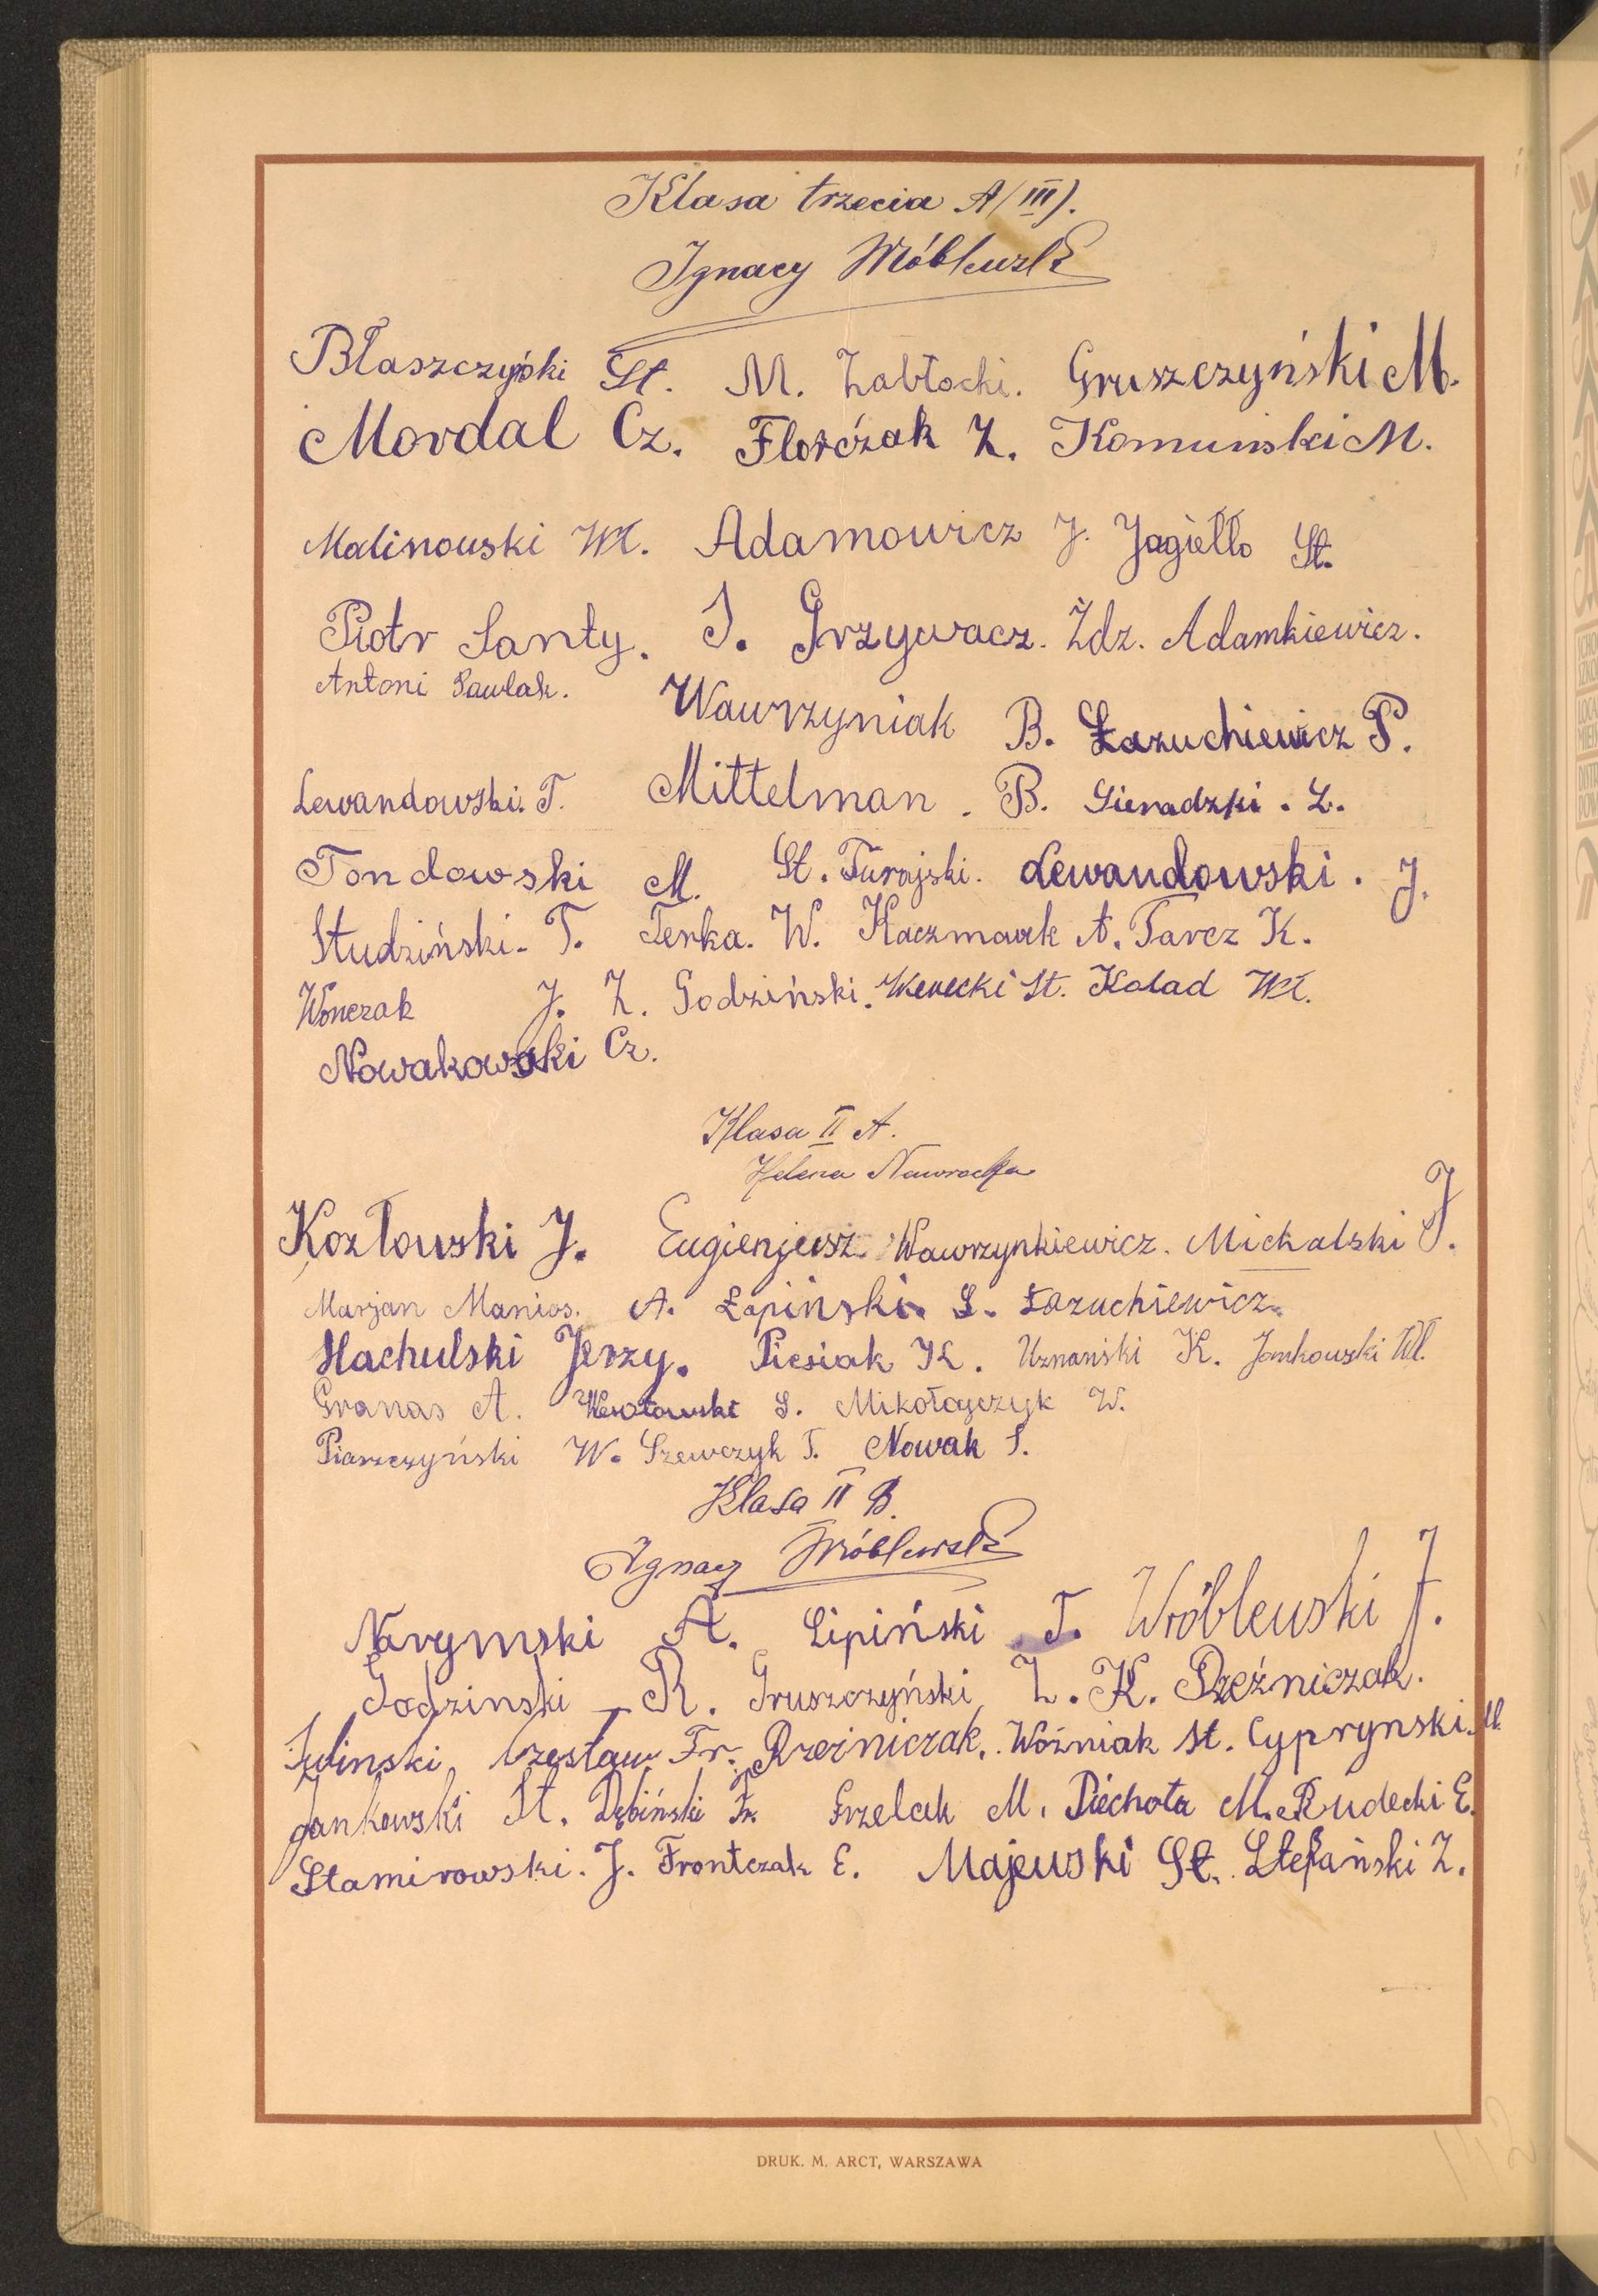 Klasa trzecia A (III).
Ignacy Wróblewski
Błaszczyński St. M. Zabłocki. Gruszczyński M.
Mordal Cz. Florczak Z. Komuński M.
Malinowski Wł. Adamowicz J. Jagiełło St.
Piotr Santy. J. Grzywacz. Zdz. Adamkiewicz.
Antoni Pawlak. Wawrzyniak B. Łazuchiewicz P.
Lewandowski. T. Mittelman. B. Sieradzki. Z.
Tondowski M. St. Turajski. Lewandowski. J.
Studziński. T. Ferka. W. Kaczmarek A. Tarcz K.
Wonczak J. Z. Godziński. Wenecki St. Kolad Wł.
Nowakowski Cz.
Klasa II A.
Helena Nawrocka
Kozłowski J. Eugienjusz Wawrzynkiewicz. Michalski J.
Marjan Manios. A. Łapiński. S. Łazuchiewicz.
Stachulski Jerzy. Piesiak K. Uznański K. Jankowski Wł.
Granas A. Wesołowski S. Mikołajczyk W.
Piaszczyński W. Szewczyk T. Nowak S.
Klasa II B.
Ignacy Wróblewski
Narymski A. Lipiński T. Wróblewski J.
Godzinski R. Gruszczyński Z. K. Rzeźniczak.
Czesław Fr. Rzeźniczak. Woźniak St. Cyprynski. M
Jankowski St. Dębiński Fr. Grzelak M. Piechota M. Rudecki E.
Stamirowski. J. Frontczak E. Majewski St. Stefański Z.
DRUK. M. ARCT, WARSZAWA